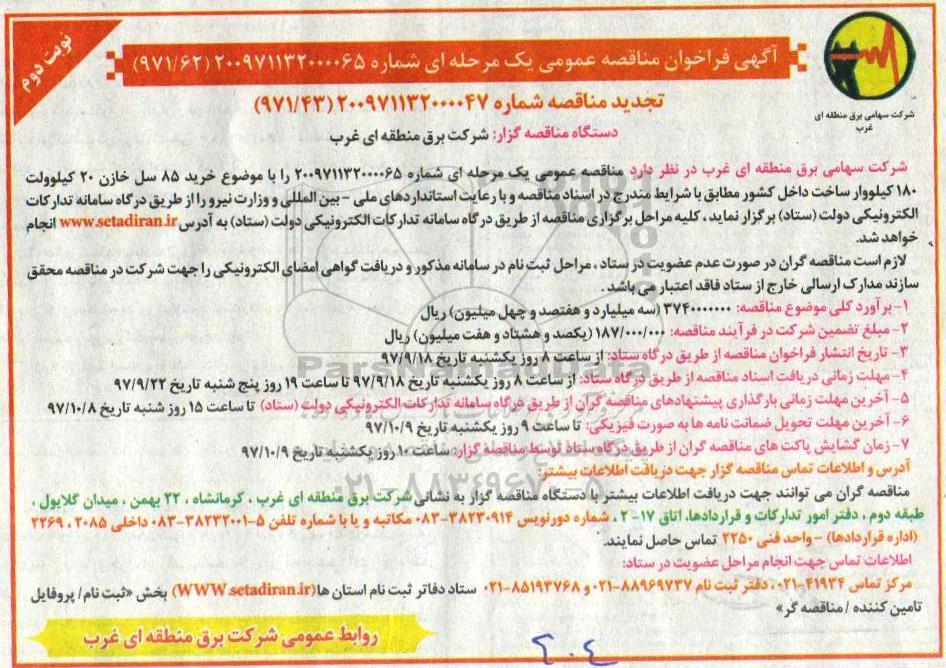 نوبت دوم
آگهی فراخوان مناقصه عمومی یک مرحله ای شماره ۲۰۰۹۷۱۱۳۲۰۰۰۰۶۵ (۹۷۱/۶۲)
تجدید مناقصه شماره ۲۰۰۹۷۱۱۳۲۰۰۰۰۴۷ (۹۷۱/۴۳)
دستگاه مناقصه گزار: شرکت برق منطقه ای غرب
شرکت سهامی برق منطقه ای
غرب
شرکت سهامی برق منطقه ای غرب در نظر دارد مناقصه عمومی یک مرحله ای شماره ۲۰۰۹۷۱۱۳۲۰۰۰۰۶۵ را با موضوع خرید ۸۵ سل خازن ۲۰ کیلوولت
۱۸۰ کیلووار ساخت داخل کشور مطابق با شرایط مندرج در اسناد مناقصه و با رعایت استانداردهای ملی - بین المللی و وزارت نیرو را از طریق درگاه سامانه تدارکات
الکترونیکی دولت (ستاد) برگزار نماید، کلیه مراحل برگزاری مناقصه از طریق درگاه سامانه تدارکات الکترونیکی دولت (ستاد) به آدرس www.setadiran.ir انجام
خواهد شد.
لازم است مناقصه گران در صورت عدم عضویت در ستاد، مراحل ثبت نام در سامانه مذکور و دریافت گواهی امضای الکترونیکی را جهت شرکت در مناقصه محقق
سازند مدارک ارسالی خارج از ستاد فاقد اعتبار می باشد.
۱- برآورد کلی موضوع مناقصه: ۳۷۴۰۰۰۰۰۰۰ (سه میلیارد و هفتصد و چهل میلیون) ریال
۲- مبلغ تضمین شرکت در فرآیند مناقصه: ۱۸۷/۰۰۰/۰۰۰ (یکصد و هشتاد و هفت میلیون) ریال
۳- تاریخ انتشار فراخوان مناقصه از طریق درگاه ستاد: از ساعت ۸ روز یکشنبه تاریخ ۹۷/۹/۱۸
۴- مهلت زمانی دریافت اسناد مناقصه از طریق درگاه ستاد: از ساعت ۸ روز یکشنبه تاریخ ۹۷/۹/۱۸ تا ساعت ۱۹ روز پنج شنبه تاریخ ۹۷/۹/۲۲
۵- آخرین مهلت زمانی بارگذاری پیشنهادهای مناقصه گران از طریق درگاه سامانه تدارکات الکترونیکی دولت (ستاد) تا ساعت ۱۵ روز شنبه تاریخ ۹۷/۱۰/۸
۶- آخرین مهلت تحویل ضمانت نامه ها به صورت فیزیکی: تا ساعت ۹ روز یکشنبه تاریخ ۹۷/۱۰/۹
۷- زمان گشایش پاکت های مناقصه گران از طریق درگاه ستاد توسط مناقصه گزار: ساعت ۱۰ روز یکشنبه تاریخ ۹۷/۱۰/۹
آدرس و اطلاعات تماس مناقصه گزار جهت دریافت اطلاعات بیشتر:
مناقصه گران می توانند جهت دریافت اطلاعات بیشتر با دستگاه مناقصه گزار به نشانی شرکت برق منطقه ای غرب، کرمانشاه، ۲۲ بهمن، میدان گلایول،
طبقه دوم، دفتر امور تدارکات و قراردادها، اتاق ۱۷-۲، شماره دورنویس ۳۸۲۳۰۹۱۴-۰۸۳ مکاتبه و یا با شماره تلفن ۵-۳۸۲۳۲۰۰۱-۰۸۳ داخلی ۲۰۸۵، ۲۲۶۹
(اداره قراردادها) -واحد فنی ۲۲۵۰ تماس حاصل نمایند.
اطلاعات تماس جهت انجام مراحل عضویت در ستاد:
مرکز تماس ۴۱۹۳۴-۰۲۱، دفتر ثبت نام ۸۸۹۶۹۷۳۷-۰۲۱ و ۸۵۱۹۳۷۶۸-۰۲۱ ستاد دفاتر ثبت نام استان ها (WWW.setadiran.ir) بخش «ثبت نام/ پروفایل
تامین کننده / مناقصه گر»
روابط عمومی شرکت برق منطقه ای غرب
ParsNamadData
۰۲۱-۸۸۳۴۹۶۷۰-۵
۲۰۴